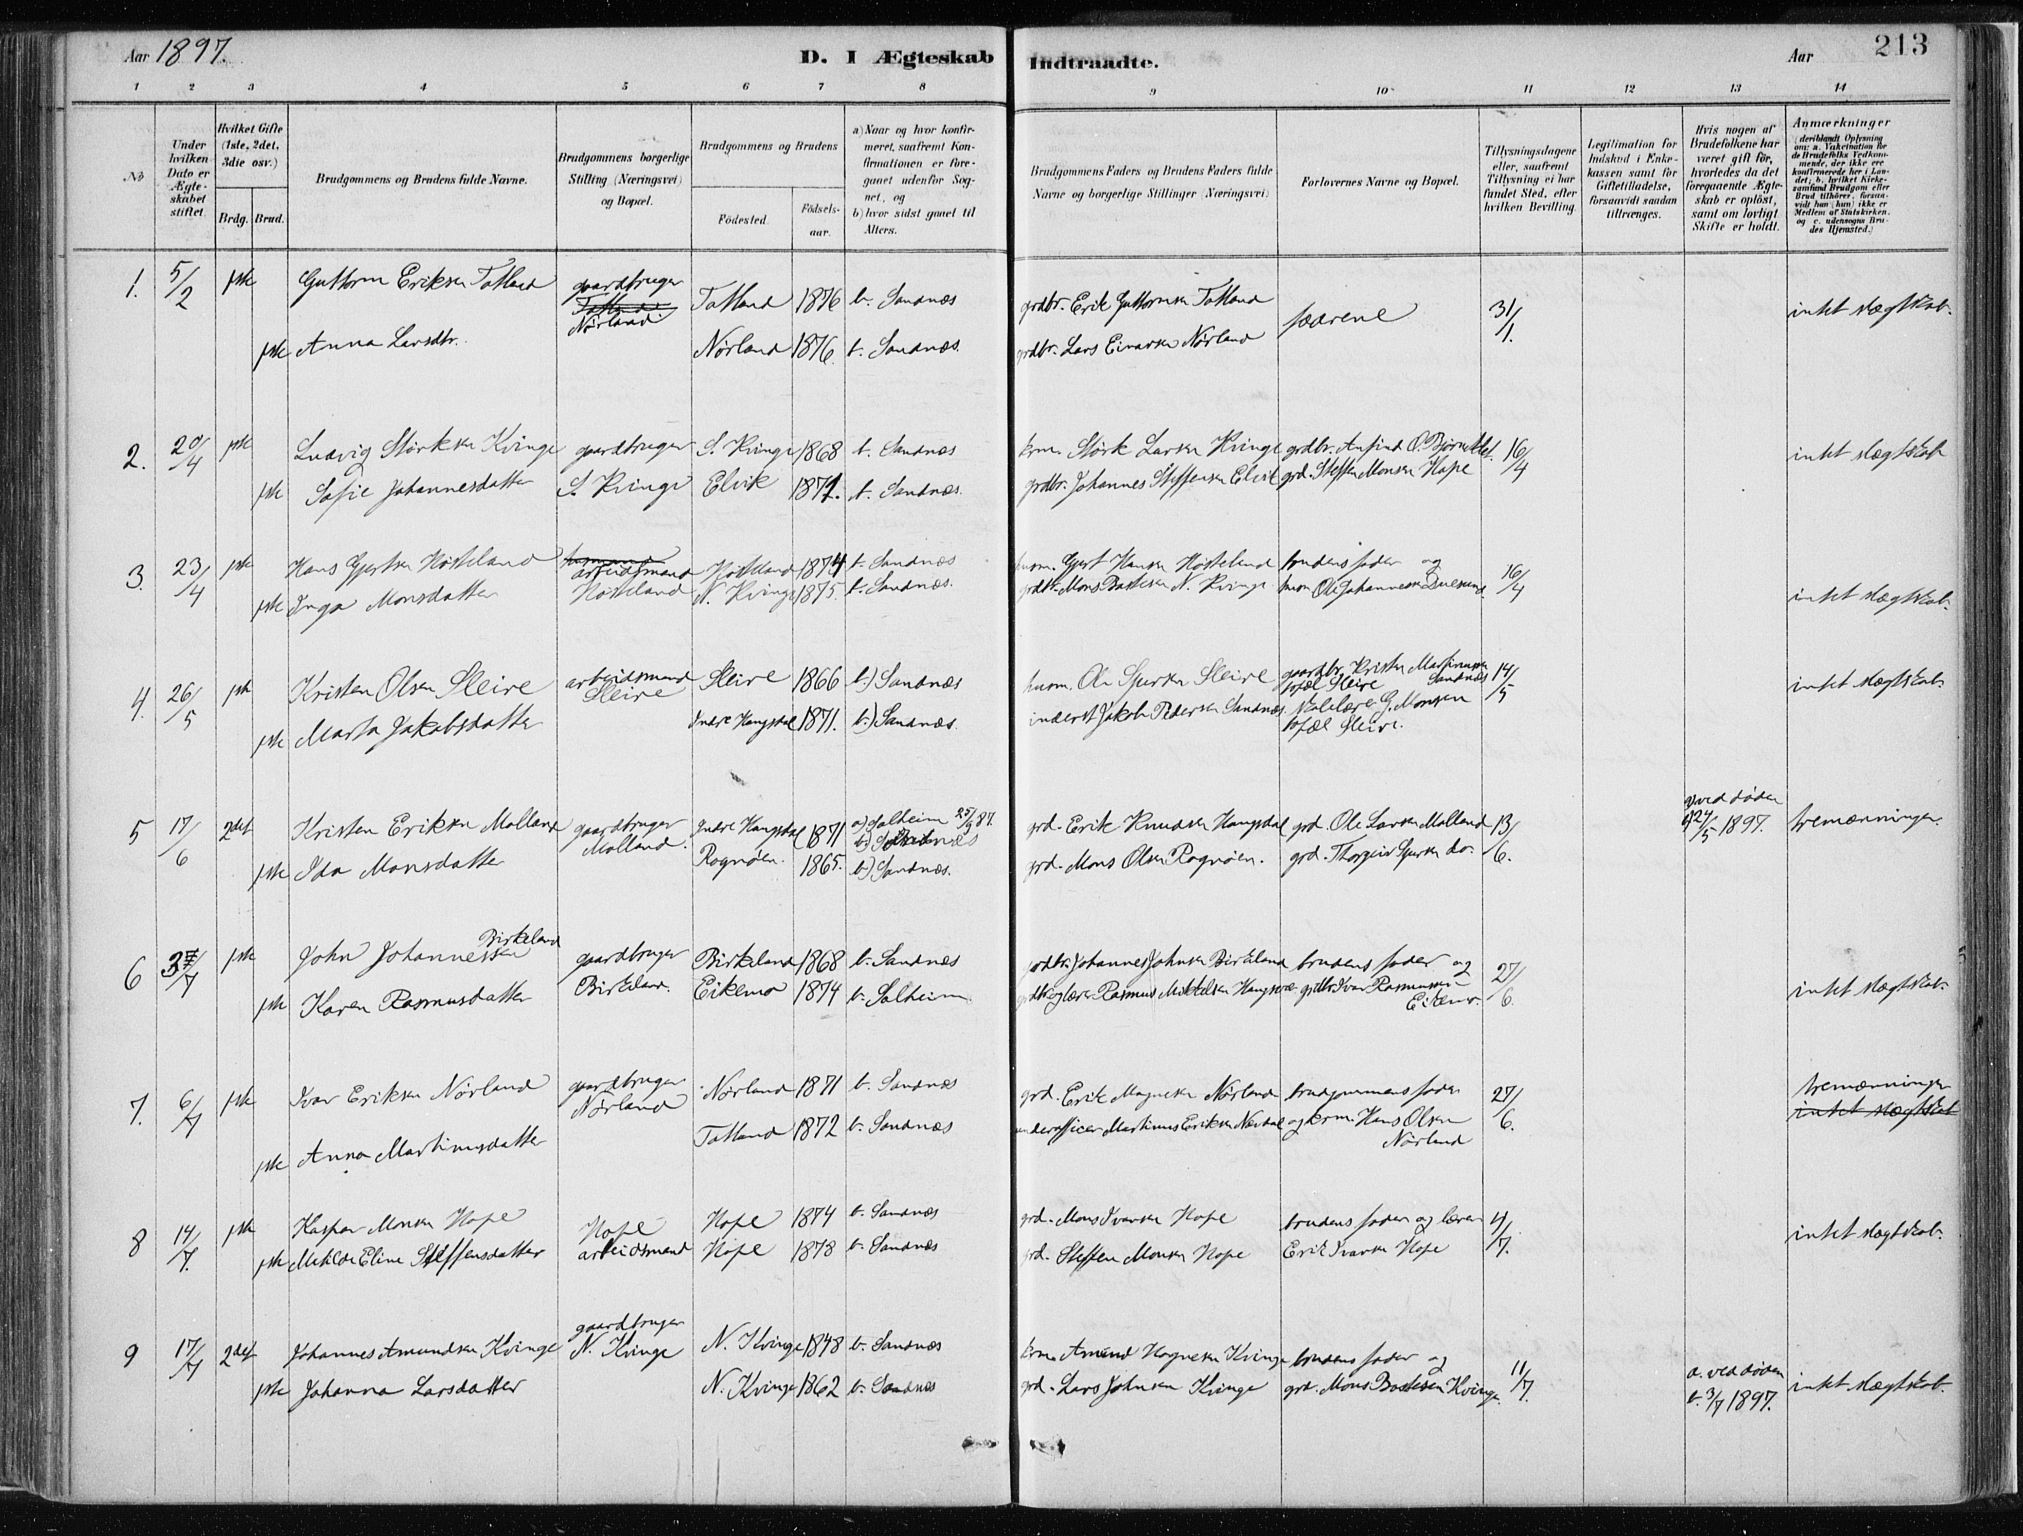 Aar 1897. D. I Ægteskab Indtraadte. Aar 213
1 2 3 4 5 6 7 8 9 10 11 12 13 14
No
Under hvilken Dato er Ægteskabet stiftet.
Hvilket Gifte (1ste, 2det, 3die osv.)
Brdg. Brud.
Brudgommens og Brudens fulde Navne.
Brudgommens borgerlige Stilling (Næringsvei) og Bopæl.
Brudgommens og Brudens
Födested. Födselsaar.
a) Naar og hvor konfirmeret, saafremt Konfirmationen er foregaaet udenfor Sognet, og
b) hvor sidst gaaet til Alters.
Brudgommens Faders og Brudens Faders fulde Navne og borgerlige Stillinger (Næringsvei)
Forlovernes Navne og Bopæl.
Tillysningsdagene eller, saafremt Tillysning ei har fundet Sted, efter hvilken Bevilling.
Legitimation for Indskud i Enkekassen samt for Giftetilladelse, forsaavidt saadan tiltrænges.
Hvis nogen af Brudefolkene har været gift för, hvorledes da det foregaaende Ægteskab er oplöst, samt om lovligt Skifte er holdt.
Anmærkninger (deriblandt Oplysning om: a. Vakcination for de Brudefolks Vedkommende, der ikke ere konfirmerede her i Landet; b. hvilket Kirkesamfund Brudgom eller Brud tilhörer, forsaavidt han (hun) ikke er Medlem af Statskirken, og c. udensogns Brudes Hjemsted.)
1. 5/2 1ste Guttorm Eriksen Tatland gaardbruger Tatland Nörland Tatland 1876 b. Sandnæs grdbr. Erik Guttormsen Tatland fædrene 31/1 intet slægtskab.
1ste Anna Larsdtr. Nörland 1876 b. Sandnæs. grdbr. Lars Einarsen Nörland
2. 20/4 1ste Ludvig Störksen Kvinge gaardbruger S. Kvinge 1868 b. Sandnæs krm. Störk Larsen Kvinge grdbr. Anfind O. 16/4 intet slægtskab
1ste Sofie Johannesdatter S. Kvinge Elvik 1871. b. Sandnæs. grdbr. Johannes Steffensen Elvik grd. Steffen Monsen Hope
3. 23/4 1ste Hans Gjertsen Hösteland husmand arbeidsmand Hösteland 1874 b. Sandnæs husm. Gjert Hansen Hösteland brudens fader og 16/4
1ste Inga Monsdatter Hösteland N. Kvinge 1875. b. Sandnæs. grdbr. Mons Bastesen N. Kvinge husm. Ole Johannesen intet slægtskab.
4. 26/5 1ste Kristen Olsen Sleire arbeidsmand Sleire Sleire 1866 b.) Sandnæs husm. Ole Sjursen Sleire gaardbr. Kristen Martinussen 14/5 intet slægtskab.
bopæl Sleire Sandnæs
1ste Marta Jakobsdatter Indre Haugsdal 1871. b.) Sandnæs. inderst Jakob Pedersen Sandnæs. skolelærer G. Monsen
bopæl Sleire.
5 17/6 2det Kristen Eriksen Molland gaardbruger Molland. Indre Haugsdal 1871 a) Solheim 25/9 87. b) Sandnæs grd. Erik Knudsen Haugsdal grd. Ole Larsen Molland 13/6. a) ved döden b) 24/5 1897. tremænninger.
1ste Ida Monsdatter Rognöen. 1865. b.) Sandnæs. grd. Mons Olsen Rognöen. grd. Thorgeir Sjursen do.
6 3/7 1ste John Johannessen Birkeland gaardbruger Birkeland. Birkeland 1868 b. Sandnæs grdbr. Johannes Johnsen Birkeland brudens fader og 27/6.
1ste Karen Rasmusdatter Eikemo 1874 b. Solheim Rasmus Mikkelsen grdbr. Ivar Rasmussen Eikemo. intet slægtskab.
7. 6/7 1ste Ivar Eriksen Nörland gaardbruger Nörland Nörland 1871 b. Sandnæs grd. Erik Magnesen Nörland brudgommens fader 27/6. tremænninger
intet slægtskab
1ste Anna Martinusdatter Tatland 1872 b. Sandnæs underofficer Martinus Eriksen og krm. Hans Olsen Nörland
8 14/7. 1ste Kasper Monsen Hope Hope arbeidsmand Hope 1874 b. Sandnæs grd. Mons Ivarsen Hope brudens fader og lærer 4/7. intet slægtskab.
1ste Matilde Eline Steffensdatter Hope 1878 b. Sandnæs grd. Steffen Monsen Hope Erik Ivarsen Hope
9 17/7 2det Johannes Amundsen Kvinge gaardbruger N. Kvinge N. Kvinge 1848 b. Sandnæs krm. Amund Hagnesen Kvinge brudens fader og 11/7. a. ved döden b. 3/7 1897. intet slægtskab.
1ste Johanna Larsdatter N. Kvinge 1862 b. Sandnæs grd. Lars Johnsen Kvinge grd. Mons Bastesen Kvinge